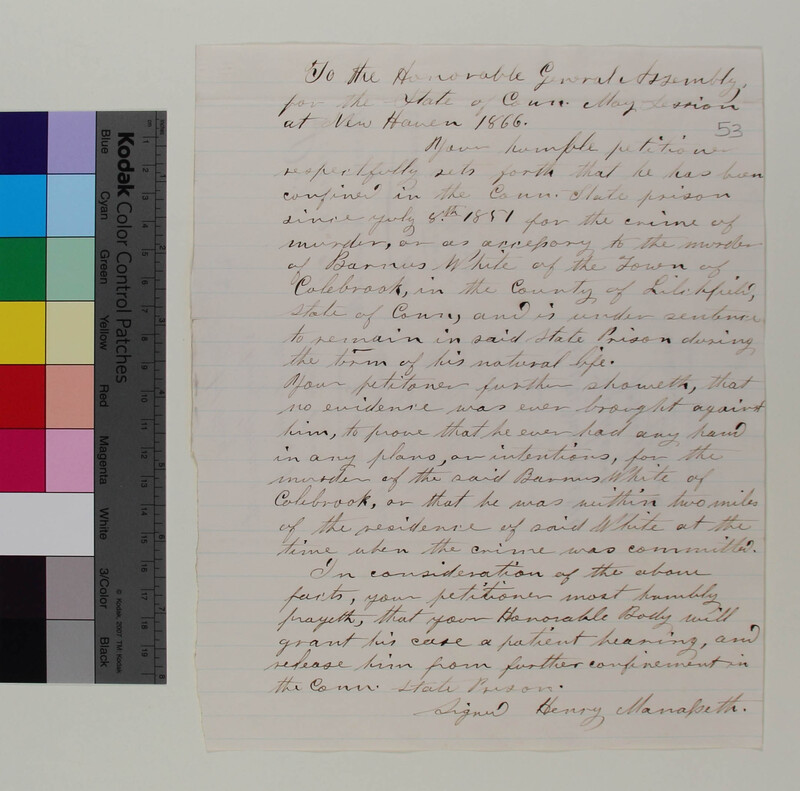 To the Honorable General Assembly,
for the State of Conn. May Session
at New Haven 1866.
53
Your humble petitioner
respectfully sets forth that he has been
confined in the Conn. State prison
since July 8th 1851 for the crime of
murder, or as accessory to the murder
of Barnus White of the Town of
Colebrook, in the County of Litchfield,
State of Conn, and is under sentence
to remain in said State Prison during
the term of his natural life.
Your petitoner further showeth, that
no evidence was ever brought against
him, to prove that he ever had any hand
in any plans, or intentions, for the
murder of the said Barnus White of
Colebrook, or that he was within two miles
of the residence of said White at the
time when the crime was committed.
In consideration of the above
facts, your petitioner most humbly
prayeth, that your Honorable Body will
grant his case a patient hearing, and
release him from further confinement in
the Conn. State Prison.
Signed Henry Manasseth.
Kodak Color Control Patches
Blue
Cyan
Green
Yellow
Red
Magenta
White
3/Color
Black
© Kodak, 2007 TM: Kodak
cm 1 2 3 4 5 6 7 8 9 10 11 12 13 14 15 16 17 18 19